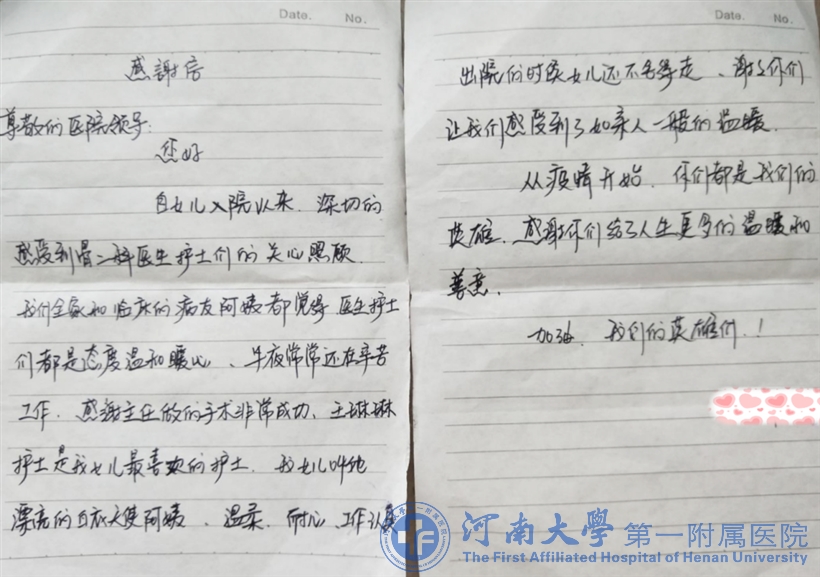 Date. No.
感謝信
尊敬的医院领导:
您好
自女儿入院以来,深切的
感受到骨二科医生护士们的关心照顾
我们全家和临床的病友阿姨都觉得医生护士
们都是态度温和暖心、半夜常常还在辛苦
工作.感謝主任做的手术非常成功、王琳琳
护士是我女儿最喜欢的护士.我女儿叫她
漂亮的白衣天使阿姨、温柔.耐心.工作认真
Date. No.
出院的时候女儿还不舍得走、谢谢你们
让我们感受到了如亲人一般的温暖.
从疫情开始.你们都是我们的
英雄.感谢你们给了人生更多的温暖和
善意.
加油.我们的英雄们.!
河南大學第一附属医院
The First Affiliated Hospital of Henan University